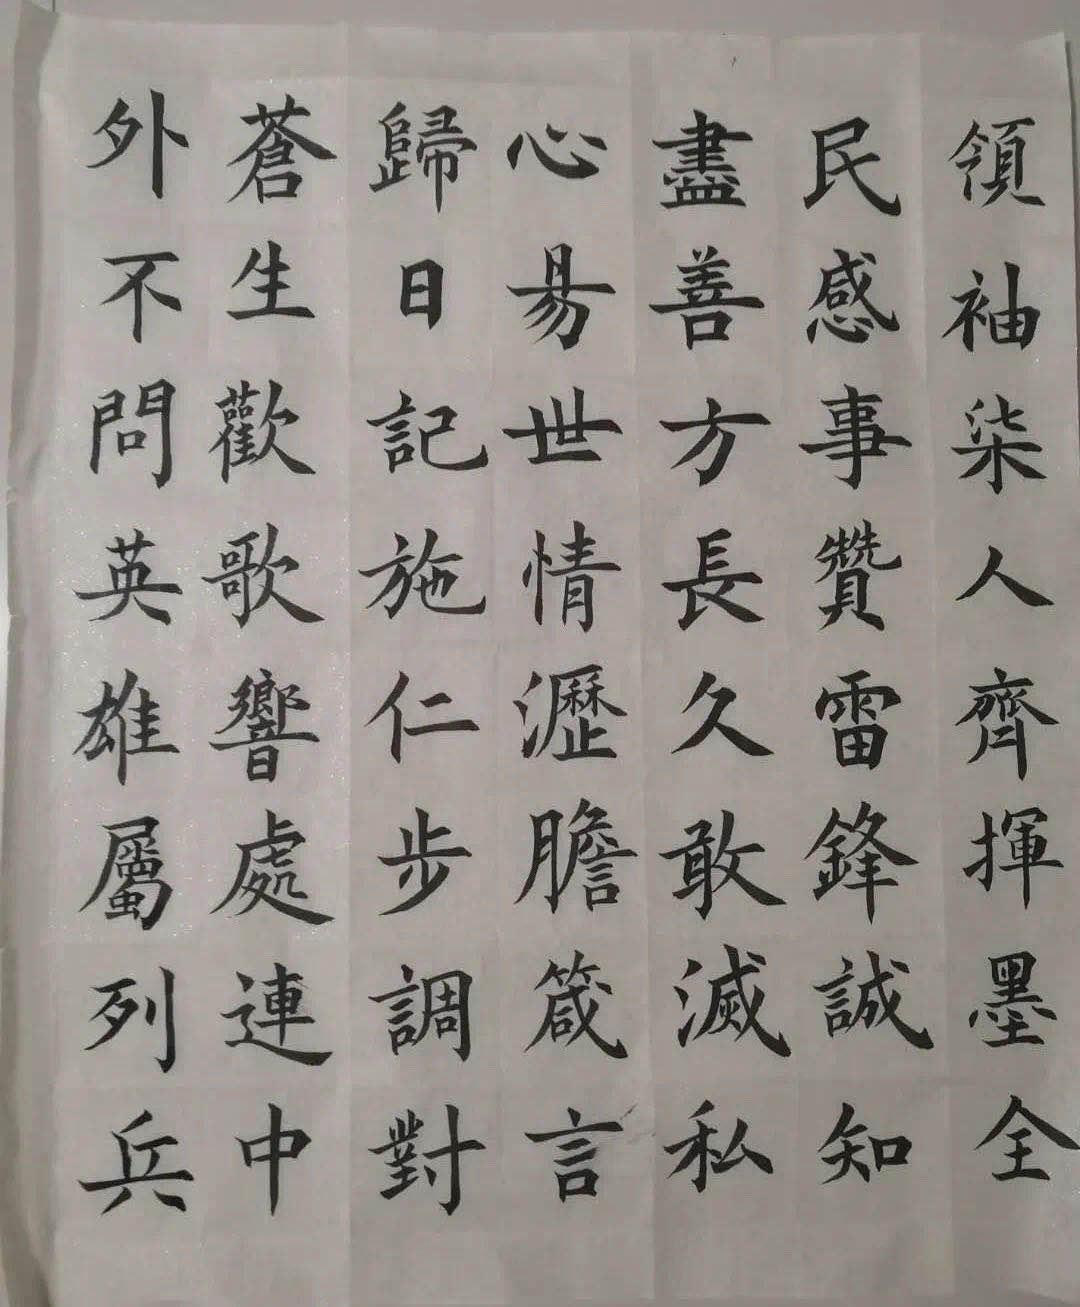 領袖柒人齊揮墨全
民感事贊雷鋒誠知
盡善方長久敢滅私
心昜世情瀝膽箴言
歸日記施仁步調對
蒼生歡歌響處連中
外不問英雄屬列兵